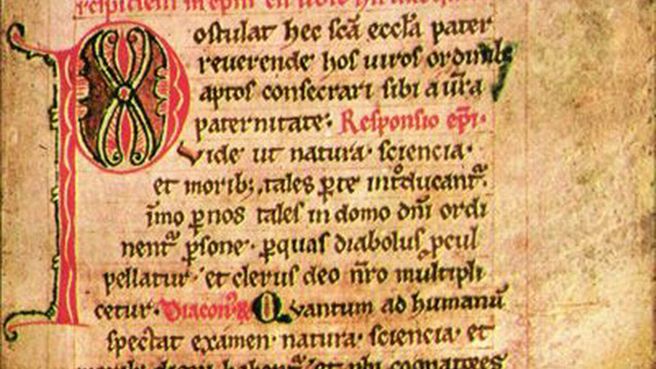 Postulat hec scā eccl̄a pater
reverende hos viros ordinib;
aptos consecrari sibi a ur̄a
paternitate: Responsio ep̄i.
Vide ut natura· sciencia·
et morib; tales per te intͦducantᷣ.
īmo per nos tales in domo dn̄i ordi
nentᷣ persone· per quas diabolus procul
pellatur· et clerus deo nr̄o multipli
cetur· Diacon⁹ Quantum ad humanū
spectat examen· natura· sciencia· et